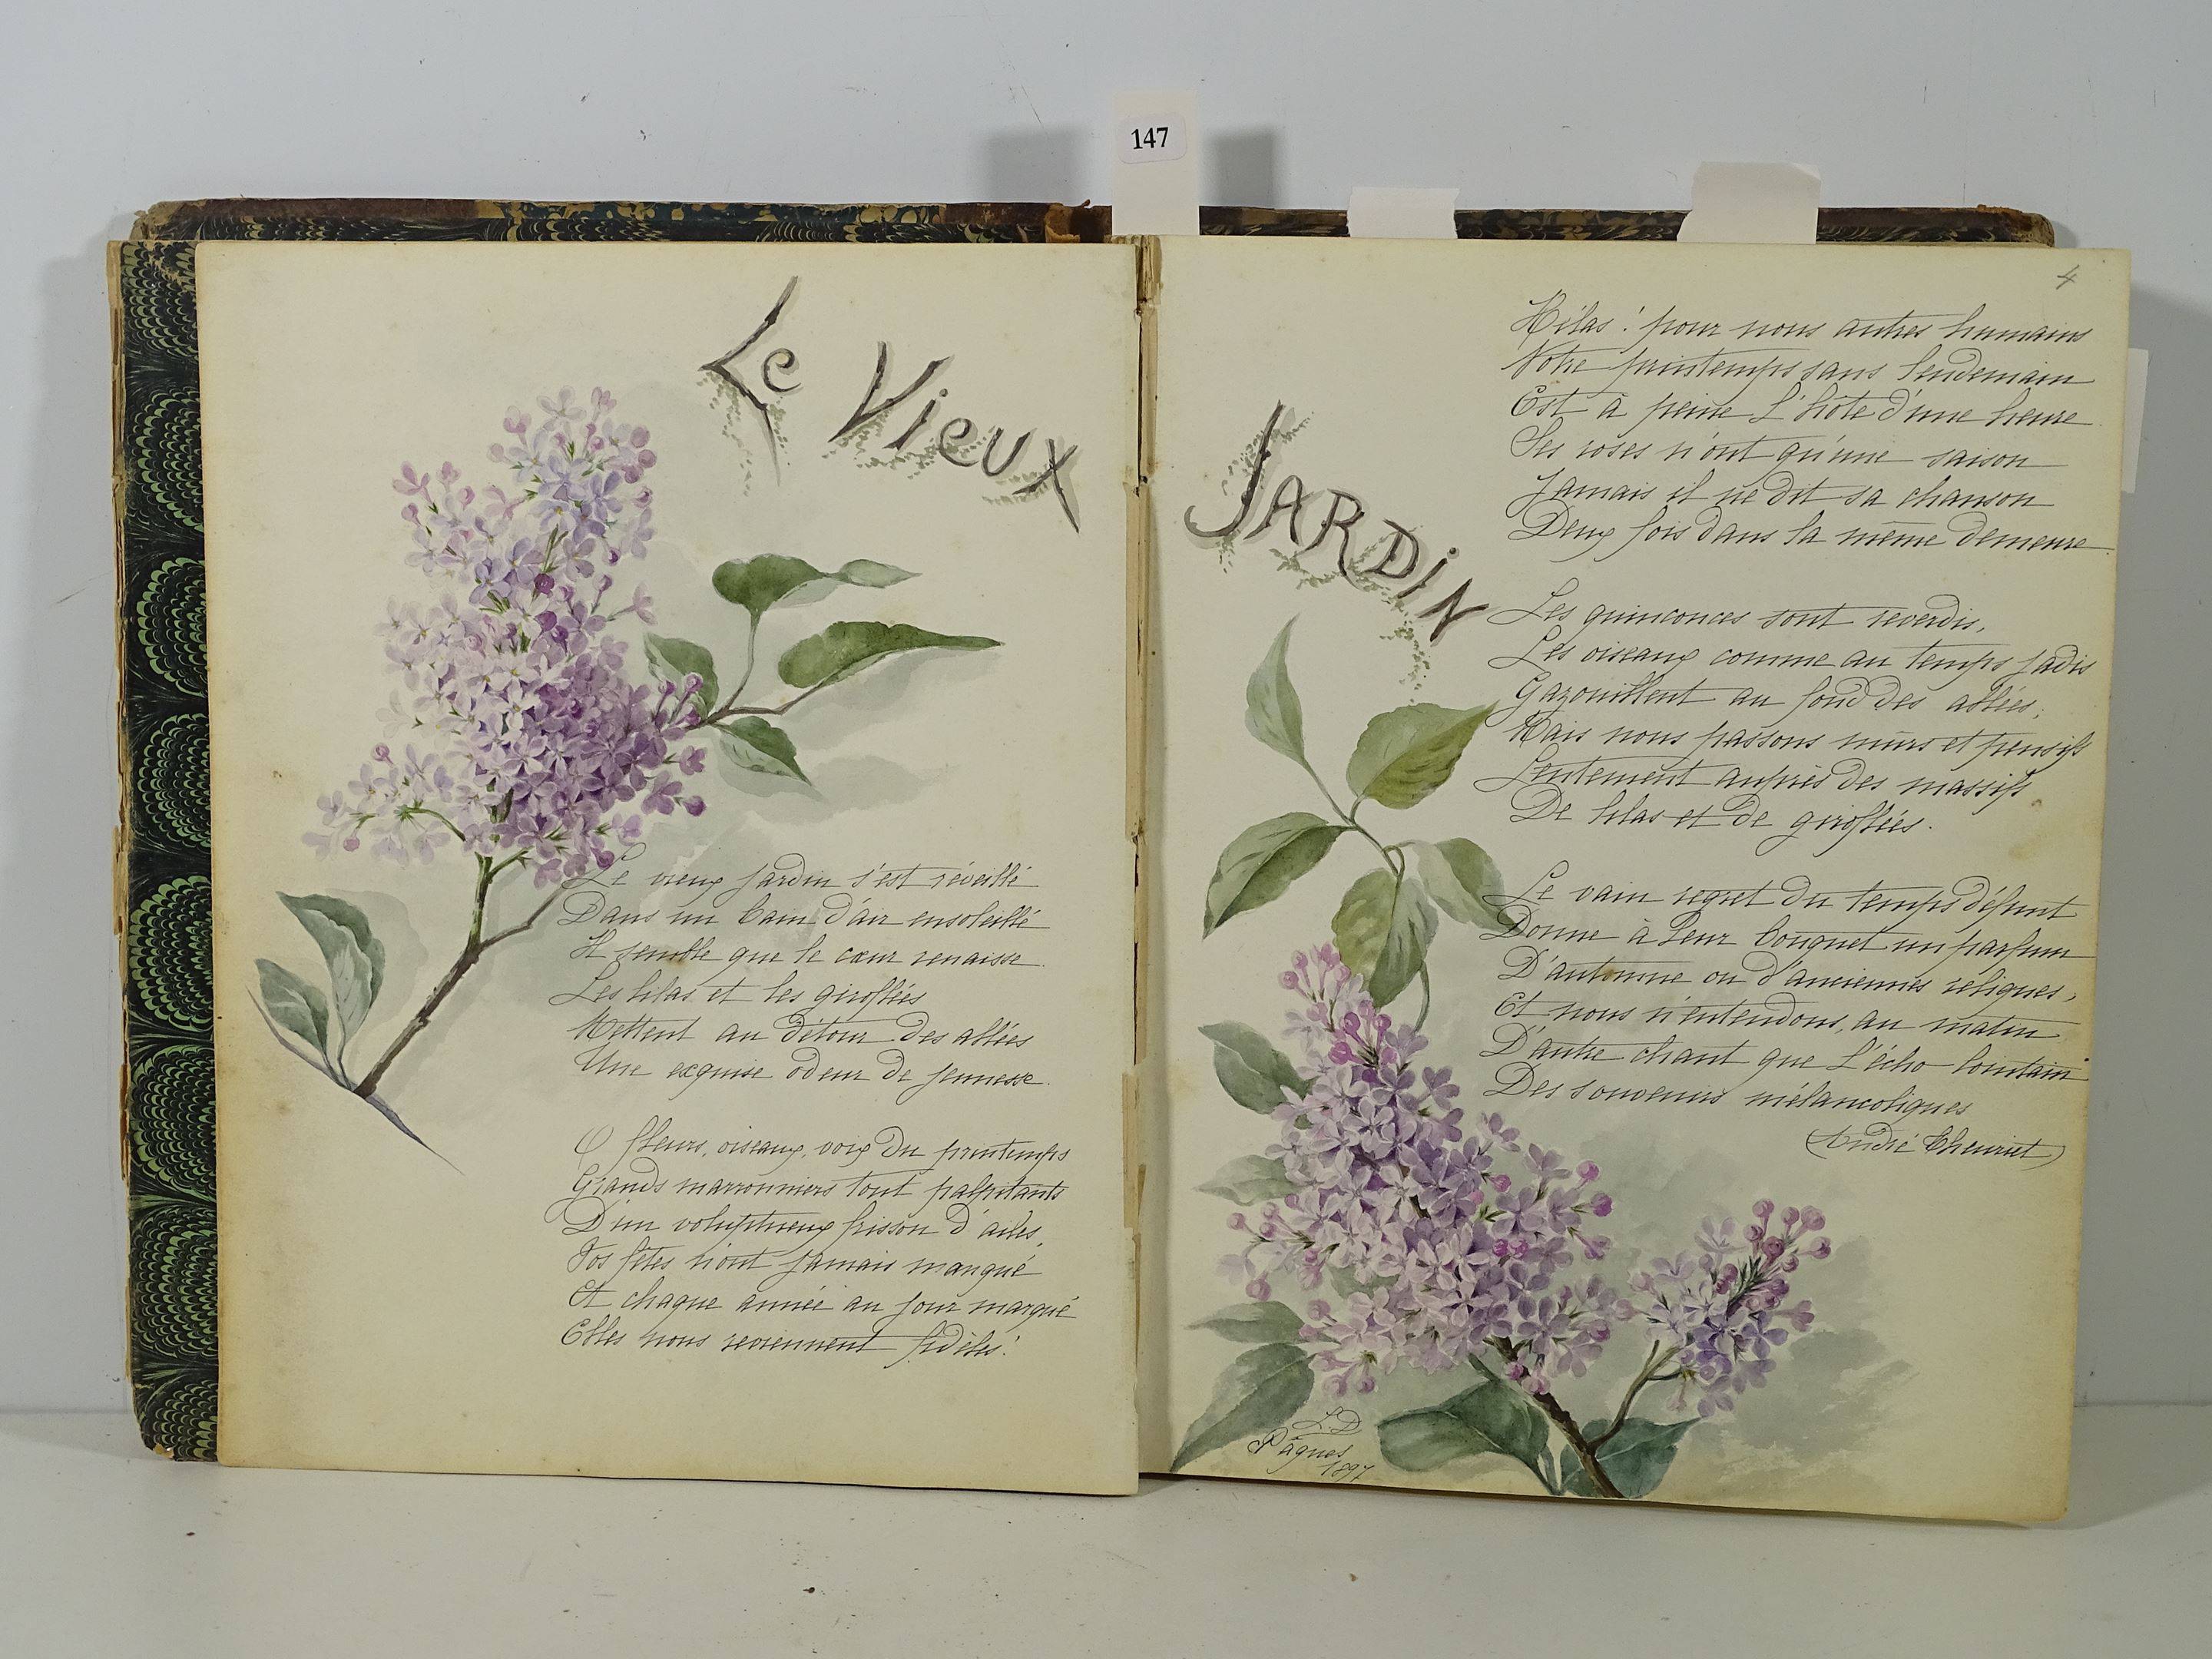 147
4
Le Vieux
Le vieux jardin s'est réveillé
Dans un bain d'air ensoleillé
Il semble que le cœur renaisse.
Les lilas et les giroflées
Mettent au détour des allées
Une exquise odeur de jeunesse.
O fleurs, oiseaux, voix du printemps
Grands marronniers tout palpitants
D'un voluptueux frisson d'ailes,
Vos fêtes n'ont jamais manqué
Et chaque année au jour marqué
Elles nous reviennent fidèles!
Jardin
Hélas! pour nous autres humains
Notre printemps sans lendemain
Est à peine l'hôte d'une heure
Ses roses n'ont qu'une saison
Jamais il ne dit sa chanson
Deux fois dans la même demeure
Les quinconces sont reverdis,
Les oiseaux comme au temps jadis
Gazouillent au fond des allées;
Mais nous passons mûrs et pensifs
Lentement auprès des massifs
De lilas et de giroflées.
Le vain regret du temps défunt
Donne à leur bouquet un parfum
D'automne ou d'anciennes reliques,
Et nous n'entendons, au matin
D'autre chant que l'écho lointain
Des souvenirs mélancoliques
(André Theuriet)
L.D
Pâques
1897